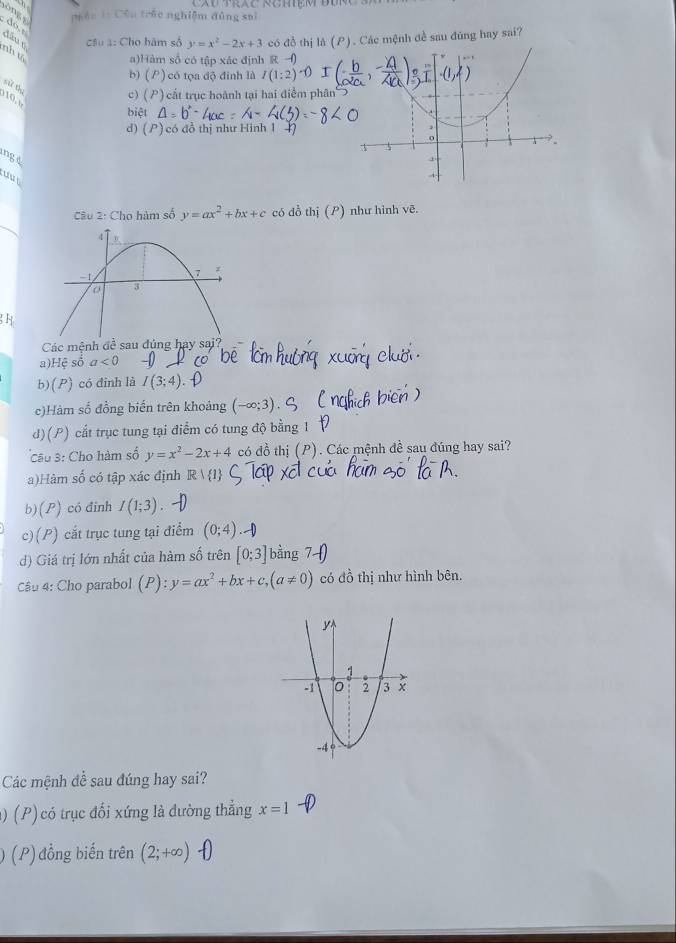 CÂU TRẮC NGHIỆM ĐÚNG SAI
Phần 1: Câu trắc nghiệm đúng sai
Câu 1: Cho hàm số y = x² − 2x + 3 có đồ thị là (P). Các mệnh đề sau đúng hay sai?
a)Hàm số có tập xác định R Đ
b) (P) có tọa độ đỉnh là I(1;2) Đ I(-b/2a, -Δ/4a)
c) (P) cắt trục hoành tại hai điểm phân S
biệt Δ = b² - 4ac = 4 - 4(3) = -8 < 0
d) (P) có đồ thị như Hình 1 Đ
Câu 2: Cho hàm số y = ax² + bx + c có đồ thị (P) như hình vẽ.
4
-1 O 3 7 x
Các mệnh đề sau đúng hay sai?
a)Hệ số a < 0 Đ P có bề lõm hướng xuống dưới.
b)(P) có đỉnh là I(3;4). Đ
c)Hàm số đồng biến trên khoảng (−∞;3). S (nghịch biến)
d)(P) cắt trục tung tại điểm có tung độ bằng 1 Đ
Câu 3: Cho hàm số y = x² − 2x + 4 có đồ thị (P). Các mệnh đề sau đúng hay sai?
a)Hàm số có tập xác định R \ {1} S Tập xđ của hàm số là R.
b)(P) có đỉnh I(1;3). Đ
c)(P) cắt trục tung tại điểm (0;4). Đ
d) Giá trị lớn nhất của hàm số trên [0;3] bằng 7 Đ
Câu 4: Cho parabol (P): y = ax² + bx + c, (a ≠ 0) có đồ thị như hình bên.
y
1
-1 O 2 3 x
-4
Các mệnh đề sau đúng hay sai?
) (P) có trục đối xứng là đường thẳng x = 1 Đ
) (P) đồng biến trên (2;+∞) Đ